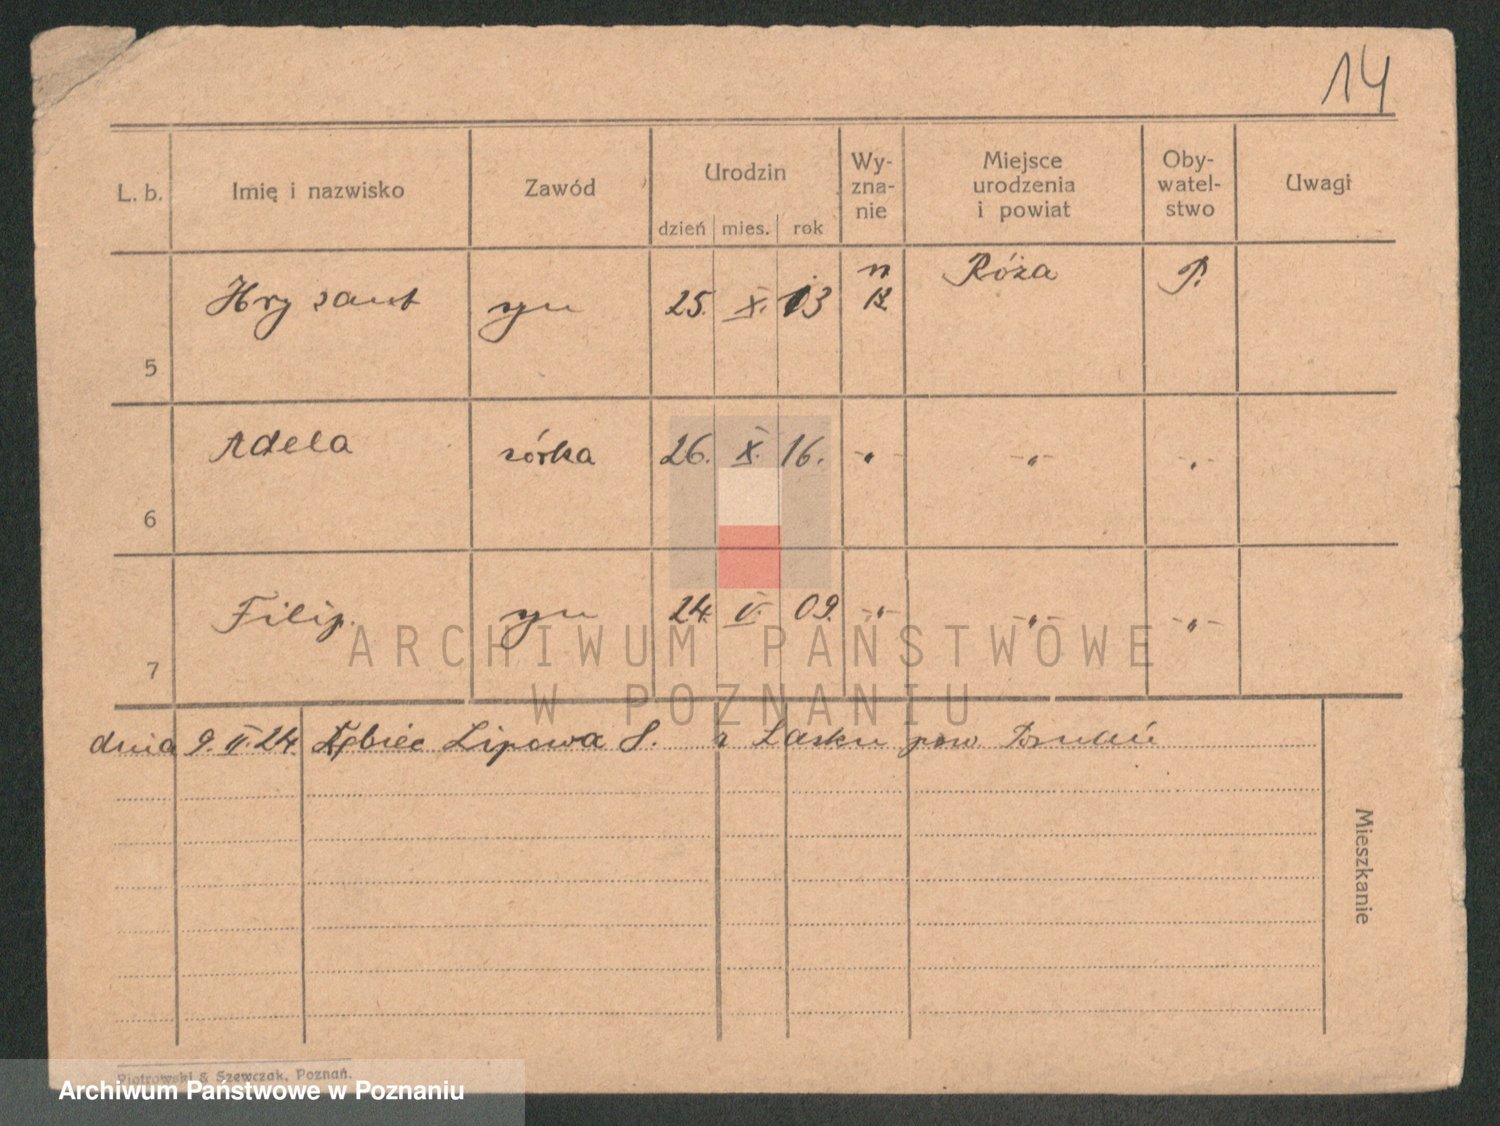 14
L. b.
Imię i nazwisko
Zawód
Urodzin
dzień mies. rok
Wy-
zna-
nie
Miejsce
urodzenia
i powiat
Oby-
watel-
stwo
Uwagi
5 syn 25. X. 13 Róża P.
6 Adela córka 26. X. 16. -"- -"- -"-
7 Filip. syn 24. V. 09. -"- -"- -"-
ARCHIWUM PAŃSTWOWE
W POZNANIU
dnia 9. 24. Dębiec Lipowa 8. z Lasku pow
Mieszkanie
Piotrowski & Szewczak, Poznań.
Archiwum Państwowe w Poznaniu